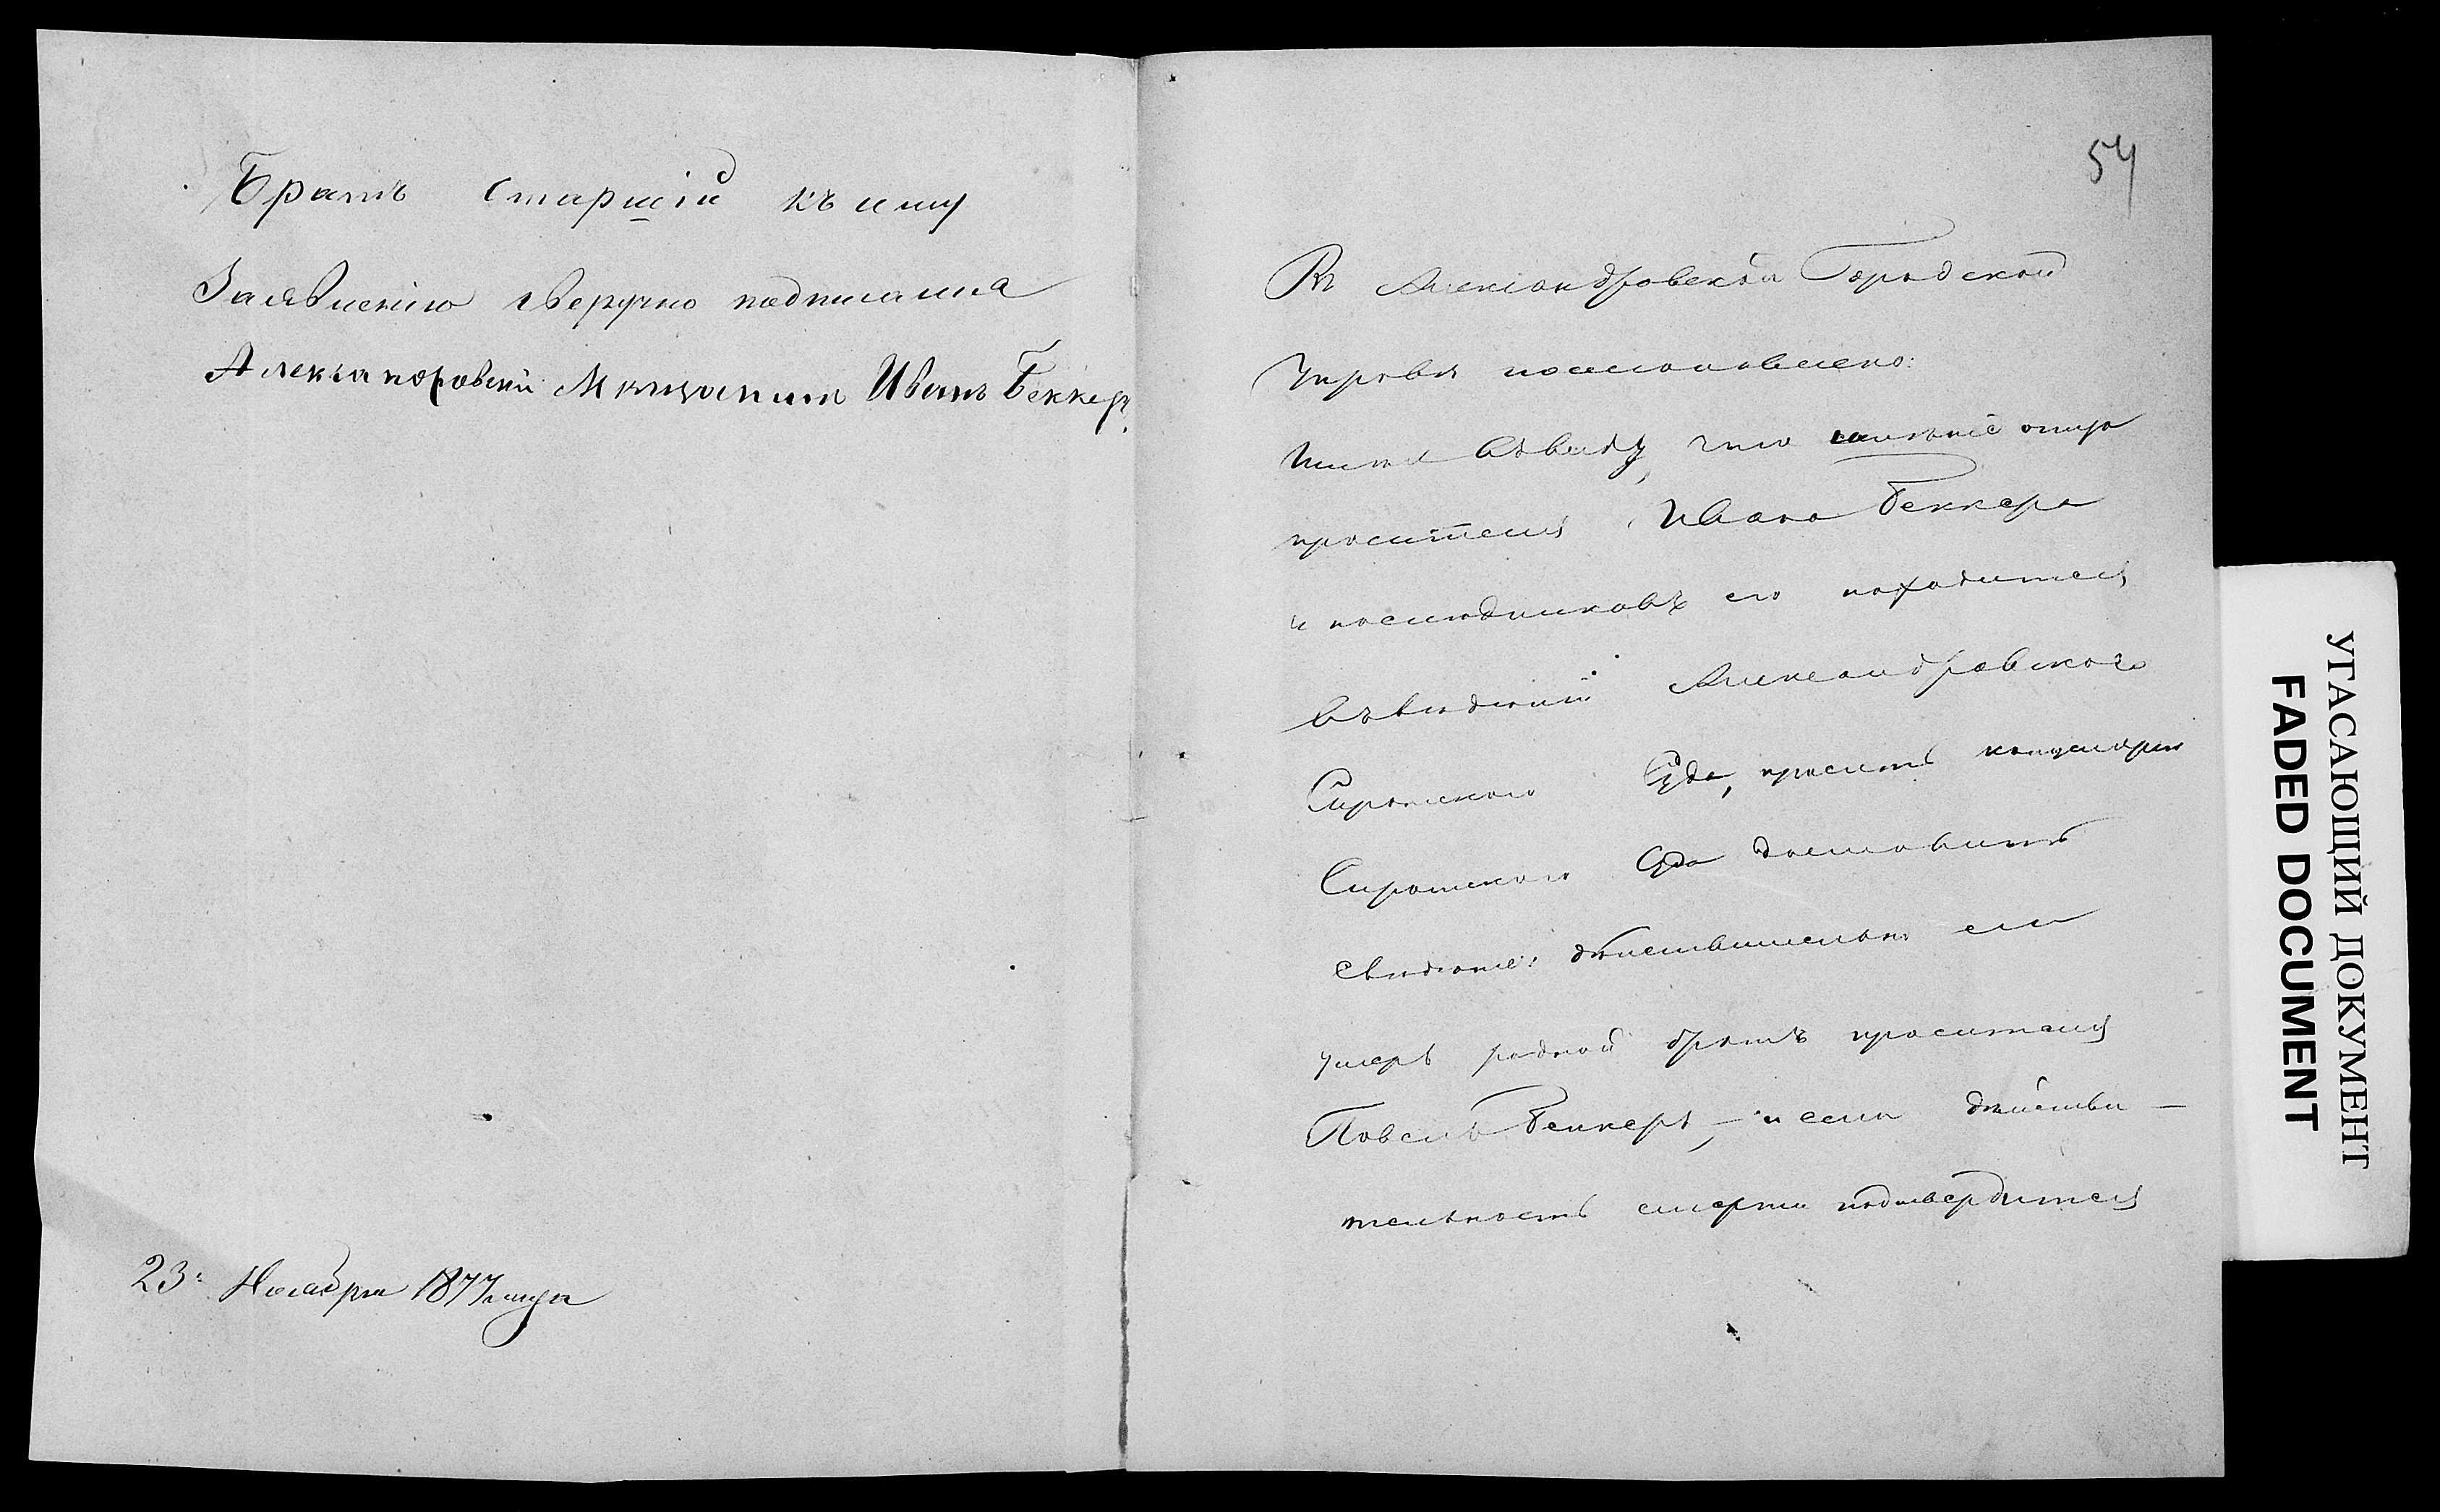 Братъ старшій къ сему
Заявленію сверучно подписался
Александровскій Мѣщанинъ Иванъ Беккеръ
23: Ноября 1877 года
54
Въ Александровской Городской
Управѣ постановлено:
Имѣя въ виду, что имѣніе отца
просителя Ивана Беккера
и наслѣдниковъ его находится
въ вѣденіи Александровскаго
Сиротскаго Суда, просить канцелярію
Сиротскаго Суда доставить
свѣденіе: дѣйствительно ли
умеръ родной братъ просителя
Павелъ Беккеръ, — и если дѣйстви—
тельность смерти подтвердится
УГАСАЮЩИЙ ДОКУМЕНТ
FADED DOCUMENT